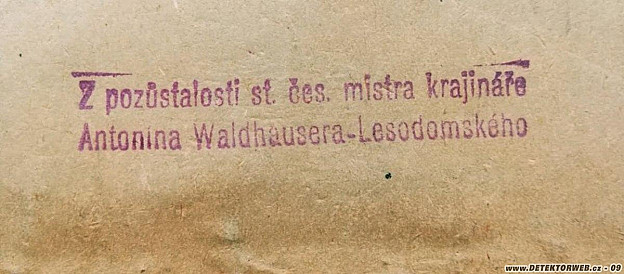 Z pozůstalosti st. čes. mistra krajináře
Antonína Waldhausera-Lesodomského
www.DETEKTORWEB.cz - 09